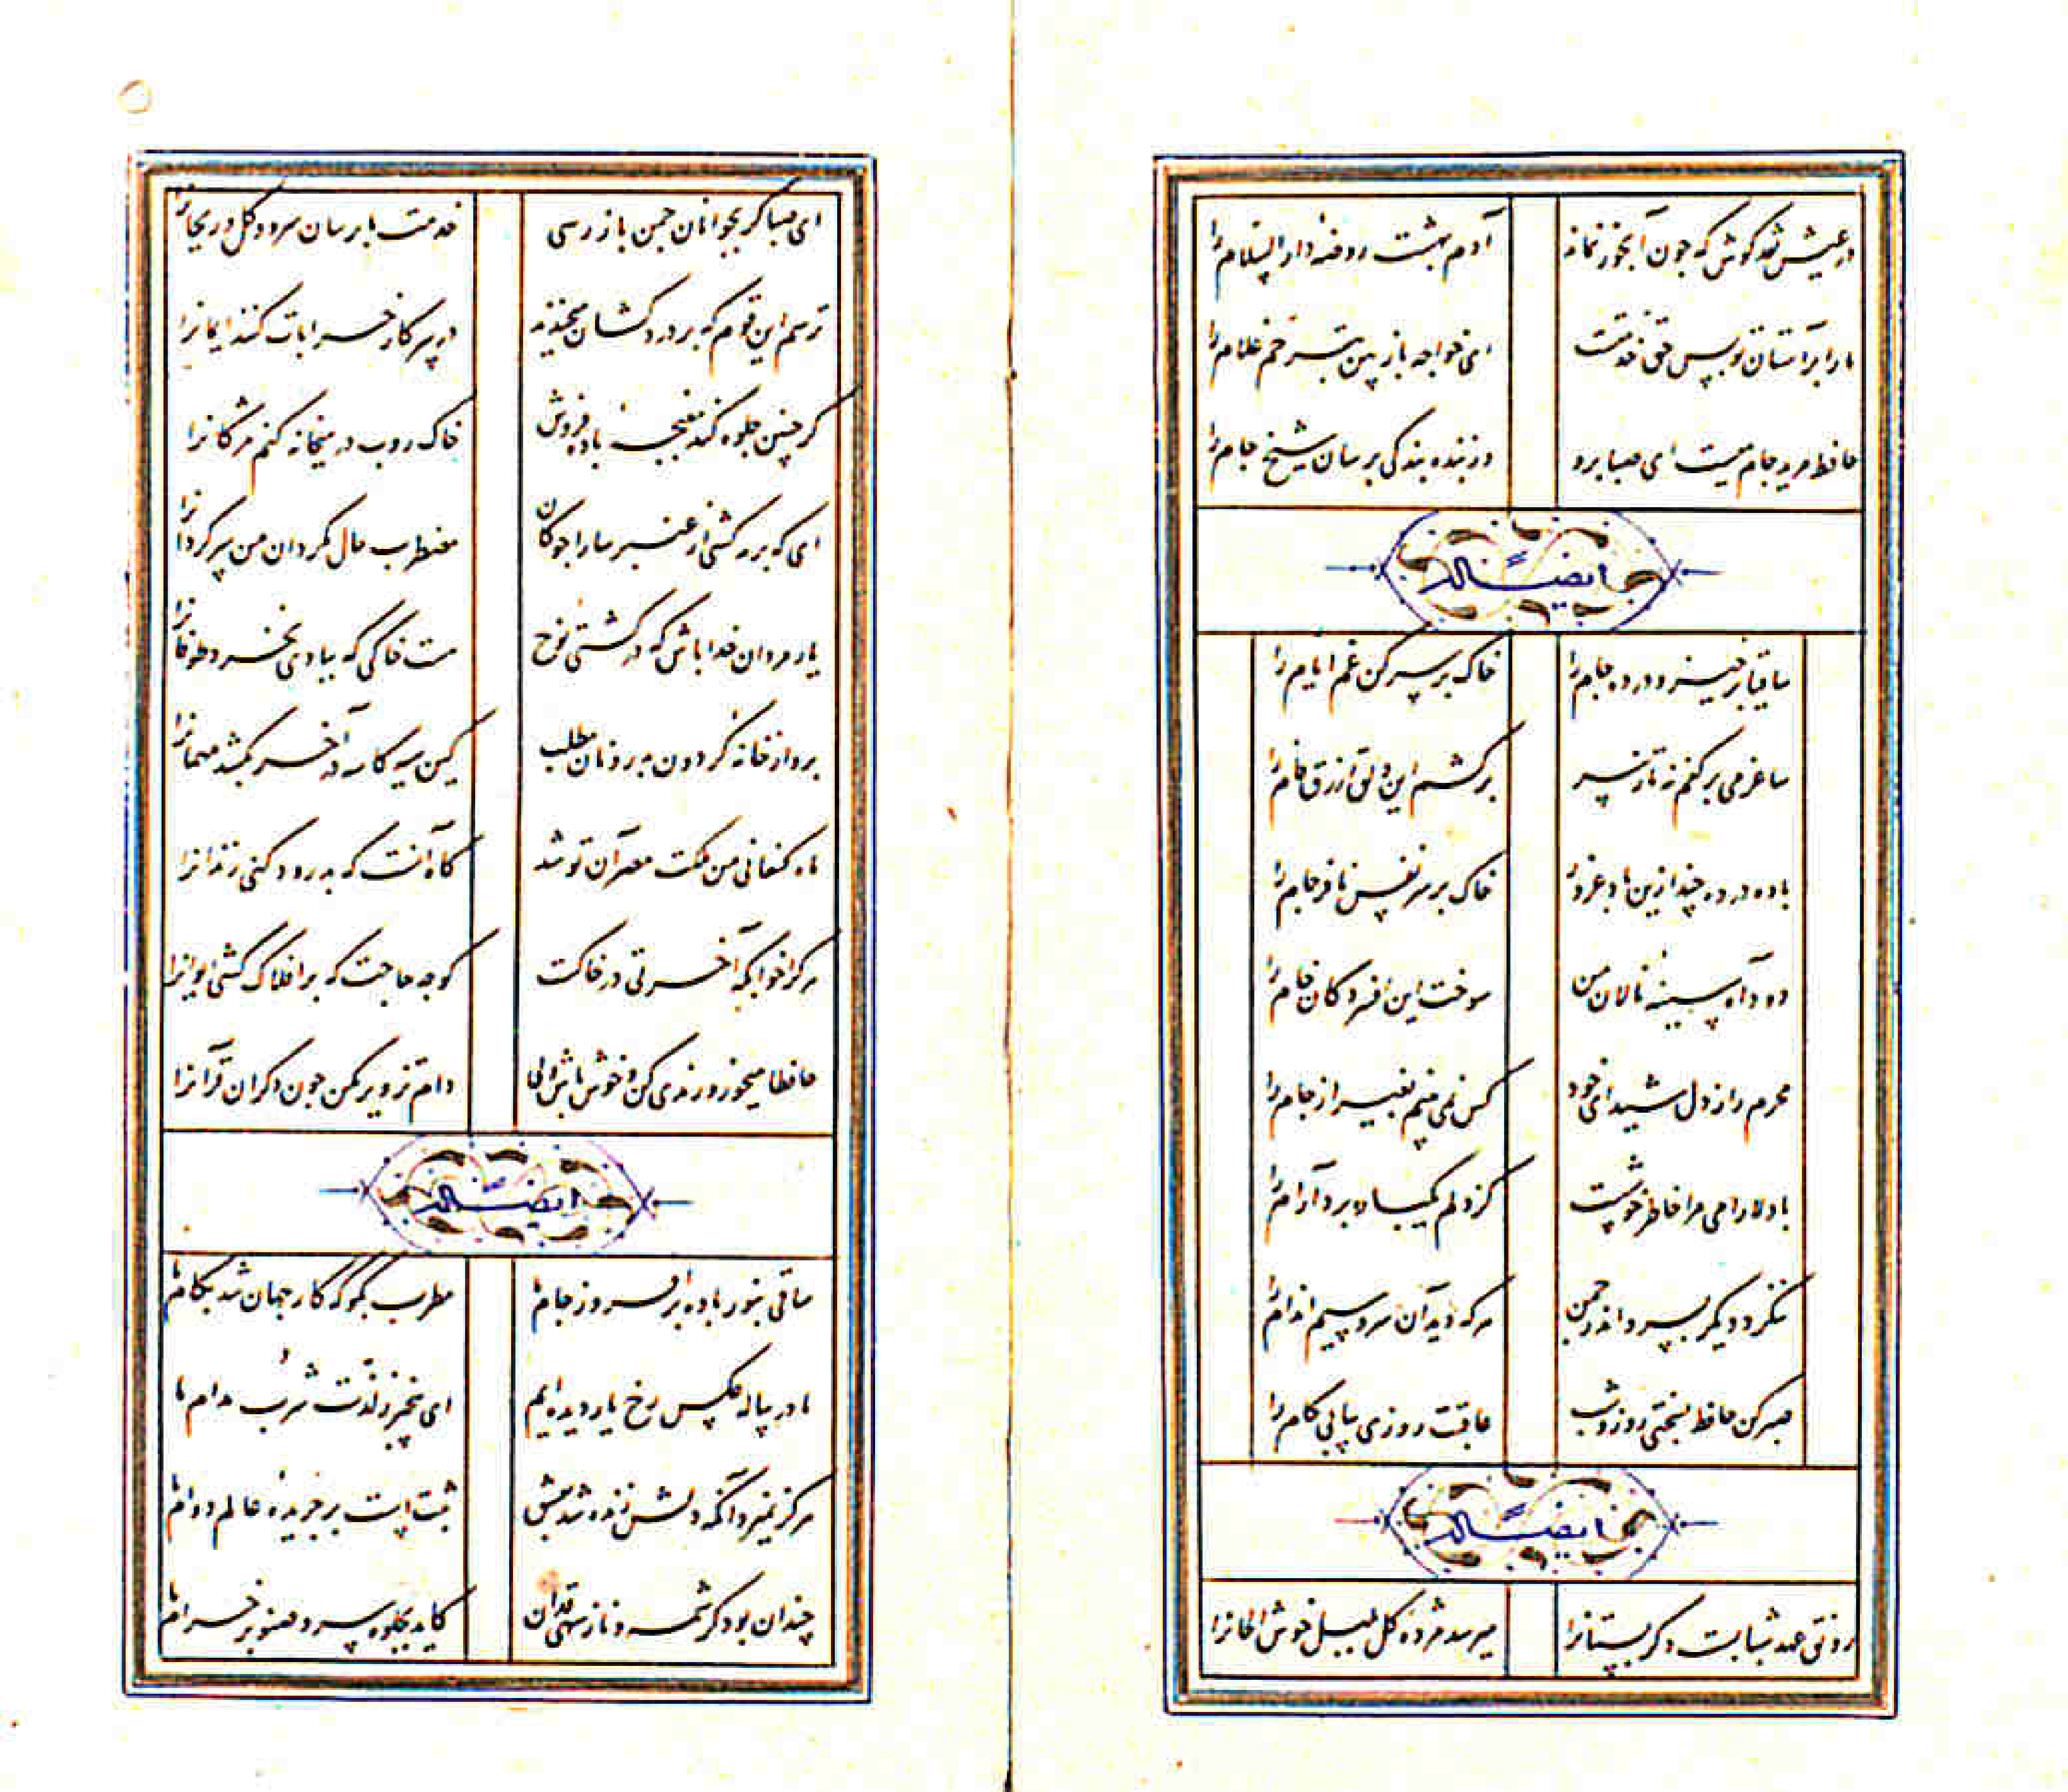 در عیش نقد کوش که چون آبخور نماند آدم بهشت روضه دار السلام را
ما را بر آستان تو بس حق خدمتست ای خواجه باز بین بترحم غلام را
حافظ مرید جام میست ای صبا برو وز بنده بندکی برسان شیخ جام را
ایضا له
ساقیا برخیز و در ده جام را خاک بر سر کن غم ایام را
ساغر می بر کفم نه تا ز سر برکشم این دلق ازرق فام را
باده در ده چند ازین باد غرور خاک بر سر نفس نافرجام را
دود آه سینه نالان من سوخت این افسردکان خام را
محرم راز دل شیدای خود کس نمی بینم بغیر از جام را
با دلارامی مرا خاطر خوشست کز دلم یکباره برد آرام را
ننکرد دیکر بسرو اندر چمن هر که دید آن سرو سیم اندام را
صبر کن حافظ بسختی روز و شب عاقبت روزی بیابی کام را
ایضا له
رونق عهد شبابست دکر بستانرا میرسد مژده کل بلبل خوش الحانرا
ای صبا کر بجوانان چمن باز رسی خدمت ما برسان سرو و کل و ریحانرا
ترسم این قوم که بر دردکشان میخندند در سر کار خرابات کنند ایمانرا
کر چنین جلوه کند مغبچه باده فروش خاک روب در میخانه کنم مژکانرا
ای که بر مه کشی از عنبر سارا چوکان مضطرب حال مکردان من سرکردانرا
یار مردان خدا باش که در کشتی نوح هست خاکی که بابی نخرد طوفانرا
برو از خانه کردون بدر و نان مطلب کین سیه کاسه در آخر بکشد مهمانرا
ماه کنعانی من مسند مصر آن تو شد کاه آنست که بدرود کنی زندانرا
هر کرا خوابکه آخر نی در خاکست کو چه حاجت که بر افلاک کشی ایوانرا
حافظا میخور و رندی کن و خوش باش ولی دام تزویر مکن چون دکران قرآنرا
ایضا له
ساقی بنور باده برافروز جام ما مطرب بکو که کار جهان شد بکام ما
ما در پیاله عکس رخ یار دیده ایم ای بیخبر ز لذت شرب مدام ما
هرکز نمیرد آنکه دلش زنده شد بعشق ثبت است بر جریده عالم دوام ما
چندان بود کرشمه و ناز سهی قدان کاید بجلوه سرو صنوبر خرام ما